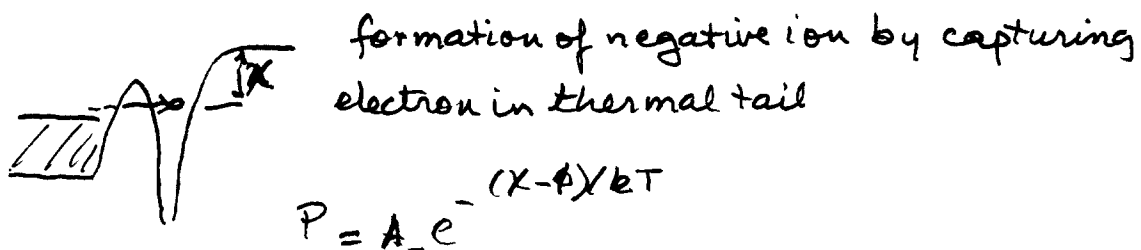 formation of negative ion by capturing
χ
electron in thermal tail
P = A_ e^-(χ-ϕ)/kT